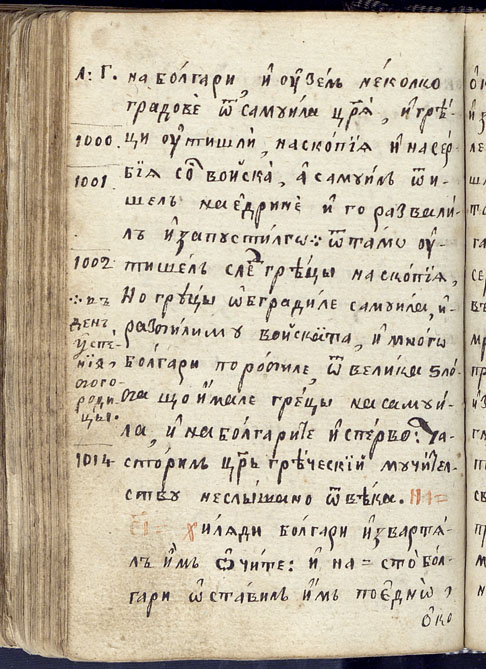 л: г. на бо́лгари, и҆ ᲂу҆зе́лъ не́колко
градовѐ ѿ самуила цр҃ѧ̀, и҆ грѣ́-
1000. ци ᲂу҆тишлѝ, на скопїѧ и҆ на сер-
1001 бїѧ со воискà, а҆ самуи́лъ ѿи-
шелъ на е҆дринè и҆ го развали́-
лъ и҆ запустилгѡ: ѿ тамо ᲂу҆-
1002 тише́лъ слѣ грѣцы на скопїѧ,
но грѣ́цы ѡ҆бградиле самуила, и҆
въ день ᲂу҆спе-
нїѧ
бого-
роди-
цы.
разбилиму воиската, и҆ многѡ
бо́лгари поробиле, ѿ велика ѕло́-
ба що и҆мале гре́цы на самуи́-
ла, и҆ на бо́лгарите и҆ сперво:
1014 сторилъ цр҃ь грѣ́ческїй мучител-
ству неслы́шано ѿ вѣка. на=
еі= хилѧди болгари и҆звартѧ́-
лъ и҆мъ ѻ҆чите: и҆ на = сто бо́л-
гари ѡ҆ставилъ и҆мъ поедно̀,
око